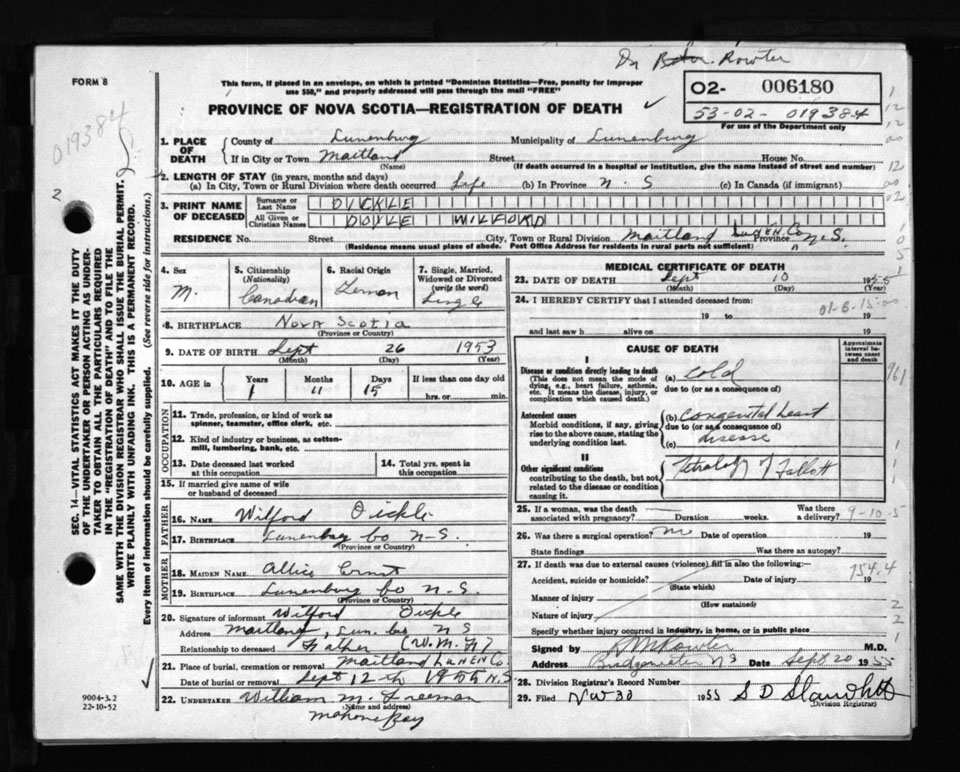 Dr Rowter
FORM 8
This form, if placed in an envelope, on which is printed "Dominion Statistics—Free, penalty for improper
use $50," and properly addressed will pass through the mail "FREE"
PROVINCE OF NOVA SCOTIA—REGISTRATION OF DEATH
02- 006180
53-02- 019384
For use of the Department only
019384
2
SEC. 14—VITAL STATISTICS ACT MAKES IT THE DUTY
OF THE UNDERTAKER OR PERSON ACTING AS UNDER-
TAKER TO OBTAIN ALL THE PARTICULARS REQUIRED
IN THE "REGISTRATION OF DEATH" AND TO FILE THE
SAME WITH THE DIVISION REGISTRAR WHO SHALL ISSUE THE BURIAL PERMIT.
WRITE PLAINLY WITH UNFADING INK. THIS IS A PERMANENT RECORD.
Every item of information should be carefully supplied. (See reverse side for instructions.)
1. PLACE OF DEATH
County of Lunenburg Municipality of Lunenburg
If in City or Town Maitland Street House No.
(Name) (If death occurred in a hospital or institution, give the name instead of street and number)
2. LENGTH OF STAY (in years, months and days)
(a) In City, Town or Rural Division where death occurred Life (b) In Province N.S (c) In Canada (if immigrant)
3. PRINT NAME OF DECEASED
Surname or Last Name OICKLE
All Given or Christian Names DOYLE WILFORD
RESIDENCE No. Street City, Town or Rural Division Maitland Lunen Co Province N.S.
(Residence means usual place of abode. Post Office Address for residents in rural parts not sufficient)
4. Sex M.
5. Citizenship (Nationality) Canadian
6. Racial Origin
7. Single, Married, Widowed or Divorced (write the word) Single
8. BIRTHPLACE Nova Scotia
(Province or Country)
9. DATE OF BIRTH Sept 26 1953
(Month) (Day) (Year)
10. AGE in Years Months Days If less than one day old
1 11 15 hrs. or min.
OCCUPATION
11. Trade, profession, or kind of work as
spinner, teamster, office clerk, etc.
12. Kind of industry or business, as cotton-
mill, lumbering, bank, etc.
13. Date deceased last worked
at this occupation
14. Total yrs. spent in
this occupation
15. If married give name of wife
or husband of deceased
FATHER
16. NAME Wilford Oickle
17. BIRTHPLACE Lunenburg Co N-S.
(Province or Country)
MOTHER
18. MAIDEN NAME Allice Ernst
19. BIRTHPLACE Lunenburg Co N-S.
(Province or Country)
20. Signature of informant Wilford Oickle
Address Maitland, Lun. Co N S
Relationship to deceased Father (W.M.F)
21. Place of burial, cremation or removal Maitland Lunen Co.
Date of burial or removal Sept 12th 1955 N.S.
22. UNDERTAKER William M. Freeman
(Name and address)
Mahone Bay
9004-3.2
22-10-52
MEDICAL CERTIFICATE OF DEATH
23. DATE OF DEATH Sept 10 1955
(Month) (Day) (Year)
24. I HEREBY CERTIFY that I attended deceased from:
19 to 19
and last saw h alive on 19
CAUSE OF DEATH
Approximate interval between onset and death
I
Disease or condition directly leading to death
(This does not mean the mode of
dying, e.g., heart failure, asthenia,
etc. It means the disease, injury, or
complication which caused death.)
(a) Cold
due to (or as a consequence of)
Antecedent causes
Morbid conditions, if any, giving
rise to the above cause, stating the
underlying condition last.
(b) Congenital heart
due to (or as a consequence of)
(c) disease
II
Other significant conditions
contributing to the death, but not
related to the disease or condition
causing it.
Tetralogy of Fallott
25. If a woman, was the death
associated with pregnancy? Duration weeks. Was there a delivery?
9-10-5
26. Was there a surgical operation? no Date of operation 19
State findings Was there an autopsy?
27. If death was due to external causes (violence) fill in also the following:—
754.4
Accident, suicide or homicide? Date of injury 19
(State which)
Manner of injury
(How sustained)
Nature of injury
Specify whether injury occurred in industry, in home, or in public place
Signed by M.D.
Address Bridgewater NS Date Sept 20 1955
28. Division Registrar's Record Number
29. Filed Nov 30 1955
(Division Registrar)